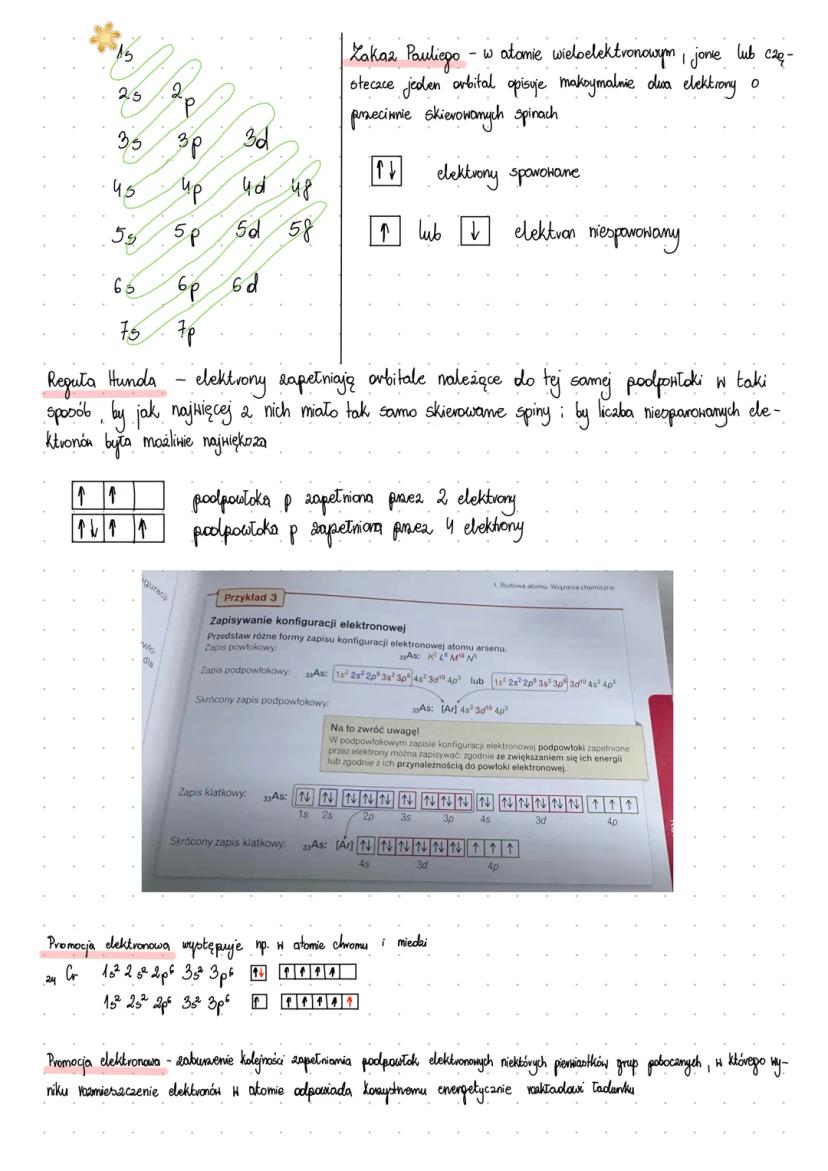 1s
2s 2p
3s 3p 3d
4s 4p 4d 4f
5s 5p 5d 5f
6s 6p 6d
7s 7p
Zakaz Pauliego - w atomie wieloelektronowym, jonie lub czą-
steczce jeden orbital opisuje maksymalnie dwa elektrony o
przeciwnie skierowanych spinach
↑↓ elektrony sparowane
↑ lub ↓ elektron niesparowany
Reguła Hunda - elektrony zapełniają orbitale należące do tej samej podpowłoki w taki
sposób, by jak najwięcej z nich miało tak samo skierowane spiny i by liczba niesparowanych ele-
ktronów była możliwie największa
↑ ↑ podpowłoka p zapełniona przez 2 elektrony
↑↓ ↑ ↑ podpowłoka p zapełniona przez 4 elektrony
1. Budowa atomu. Wiązania chemiczne
Przykład 3
Zapisywanie konfiguracji elektronowej
Przedstaw różne formy zapisu konfiguracji elektronowej atomu arsenu.
Zapis powłokowy: ₃₃As: K² L⁸ M¹⁸ N⁵
Zapis podpowłokowy: ₃₃As: 1s² 2s² 2p⁶ 3s² 3p⁶ 4s² 3d¹⁰ 4p³ lub 1s² 2s² 2p⁶ 3s² 3p⁶ 3d¹⁰ 4s² 4p³
Skrócony zapis podpowłokowy: ₃₃As: [Ar] 4s² 3d¹⁰ 4p³
Na to zwróć uwagę!
W podpowłokowym zapisie konfiguracji elektronowej podpowłoki zapełnione
przez elektrony można zapisywać: zgodnie ze zwiększaniem się ich energii
lub zgodnie z ich przynależnością do powłoki elektronowej.
Zapis klatkowy: ₃₃As: ↑↓ ↑↓ ↑↓↑↓↑↓ ↑↓ ↑↓↑↓↑↓ ↑↓ ↑↓↑↓↑↓↑↓↑↓ ↑ ↑ ↑
1s 2s 2p 3s 3p 4s 3d 4p
Skrócony zapis klatkowy: ₃₃As: [Ar] ↑↓ ↑↓↑↓↑↓↑↓↑↓ ↑ ↑ ↑
4s 3d 4p
Promocja elektronowa występuje np. w atomie chromu i miedzi
₂₄Cr 1s² 2s² 2p⁶ 3s² 3p⁶ ↑↓ ↑ ↑ ↑ ↑
1s² 2s² 2p⁶ 3s² 3p⁶ ↑ ↑ ↑ ↑ ↑ ↑
Promocja elektronowa - zaburzenie kolejności zapełniania podpowłok elektronowych niektórych pierwiastków grup pobocznych, w którego wy-
niku rozmieszczenie elektronów w atomie odpowiada korzystnemu energetycznie rozkładowi ładunku